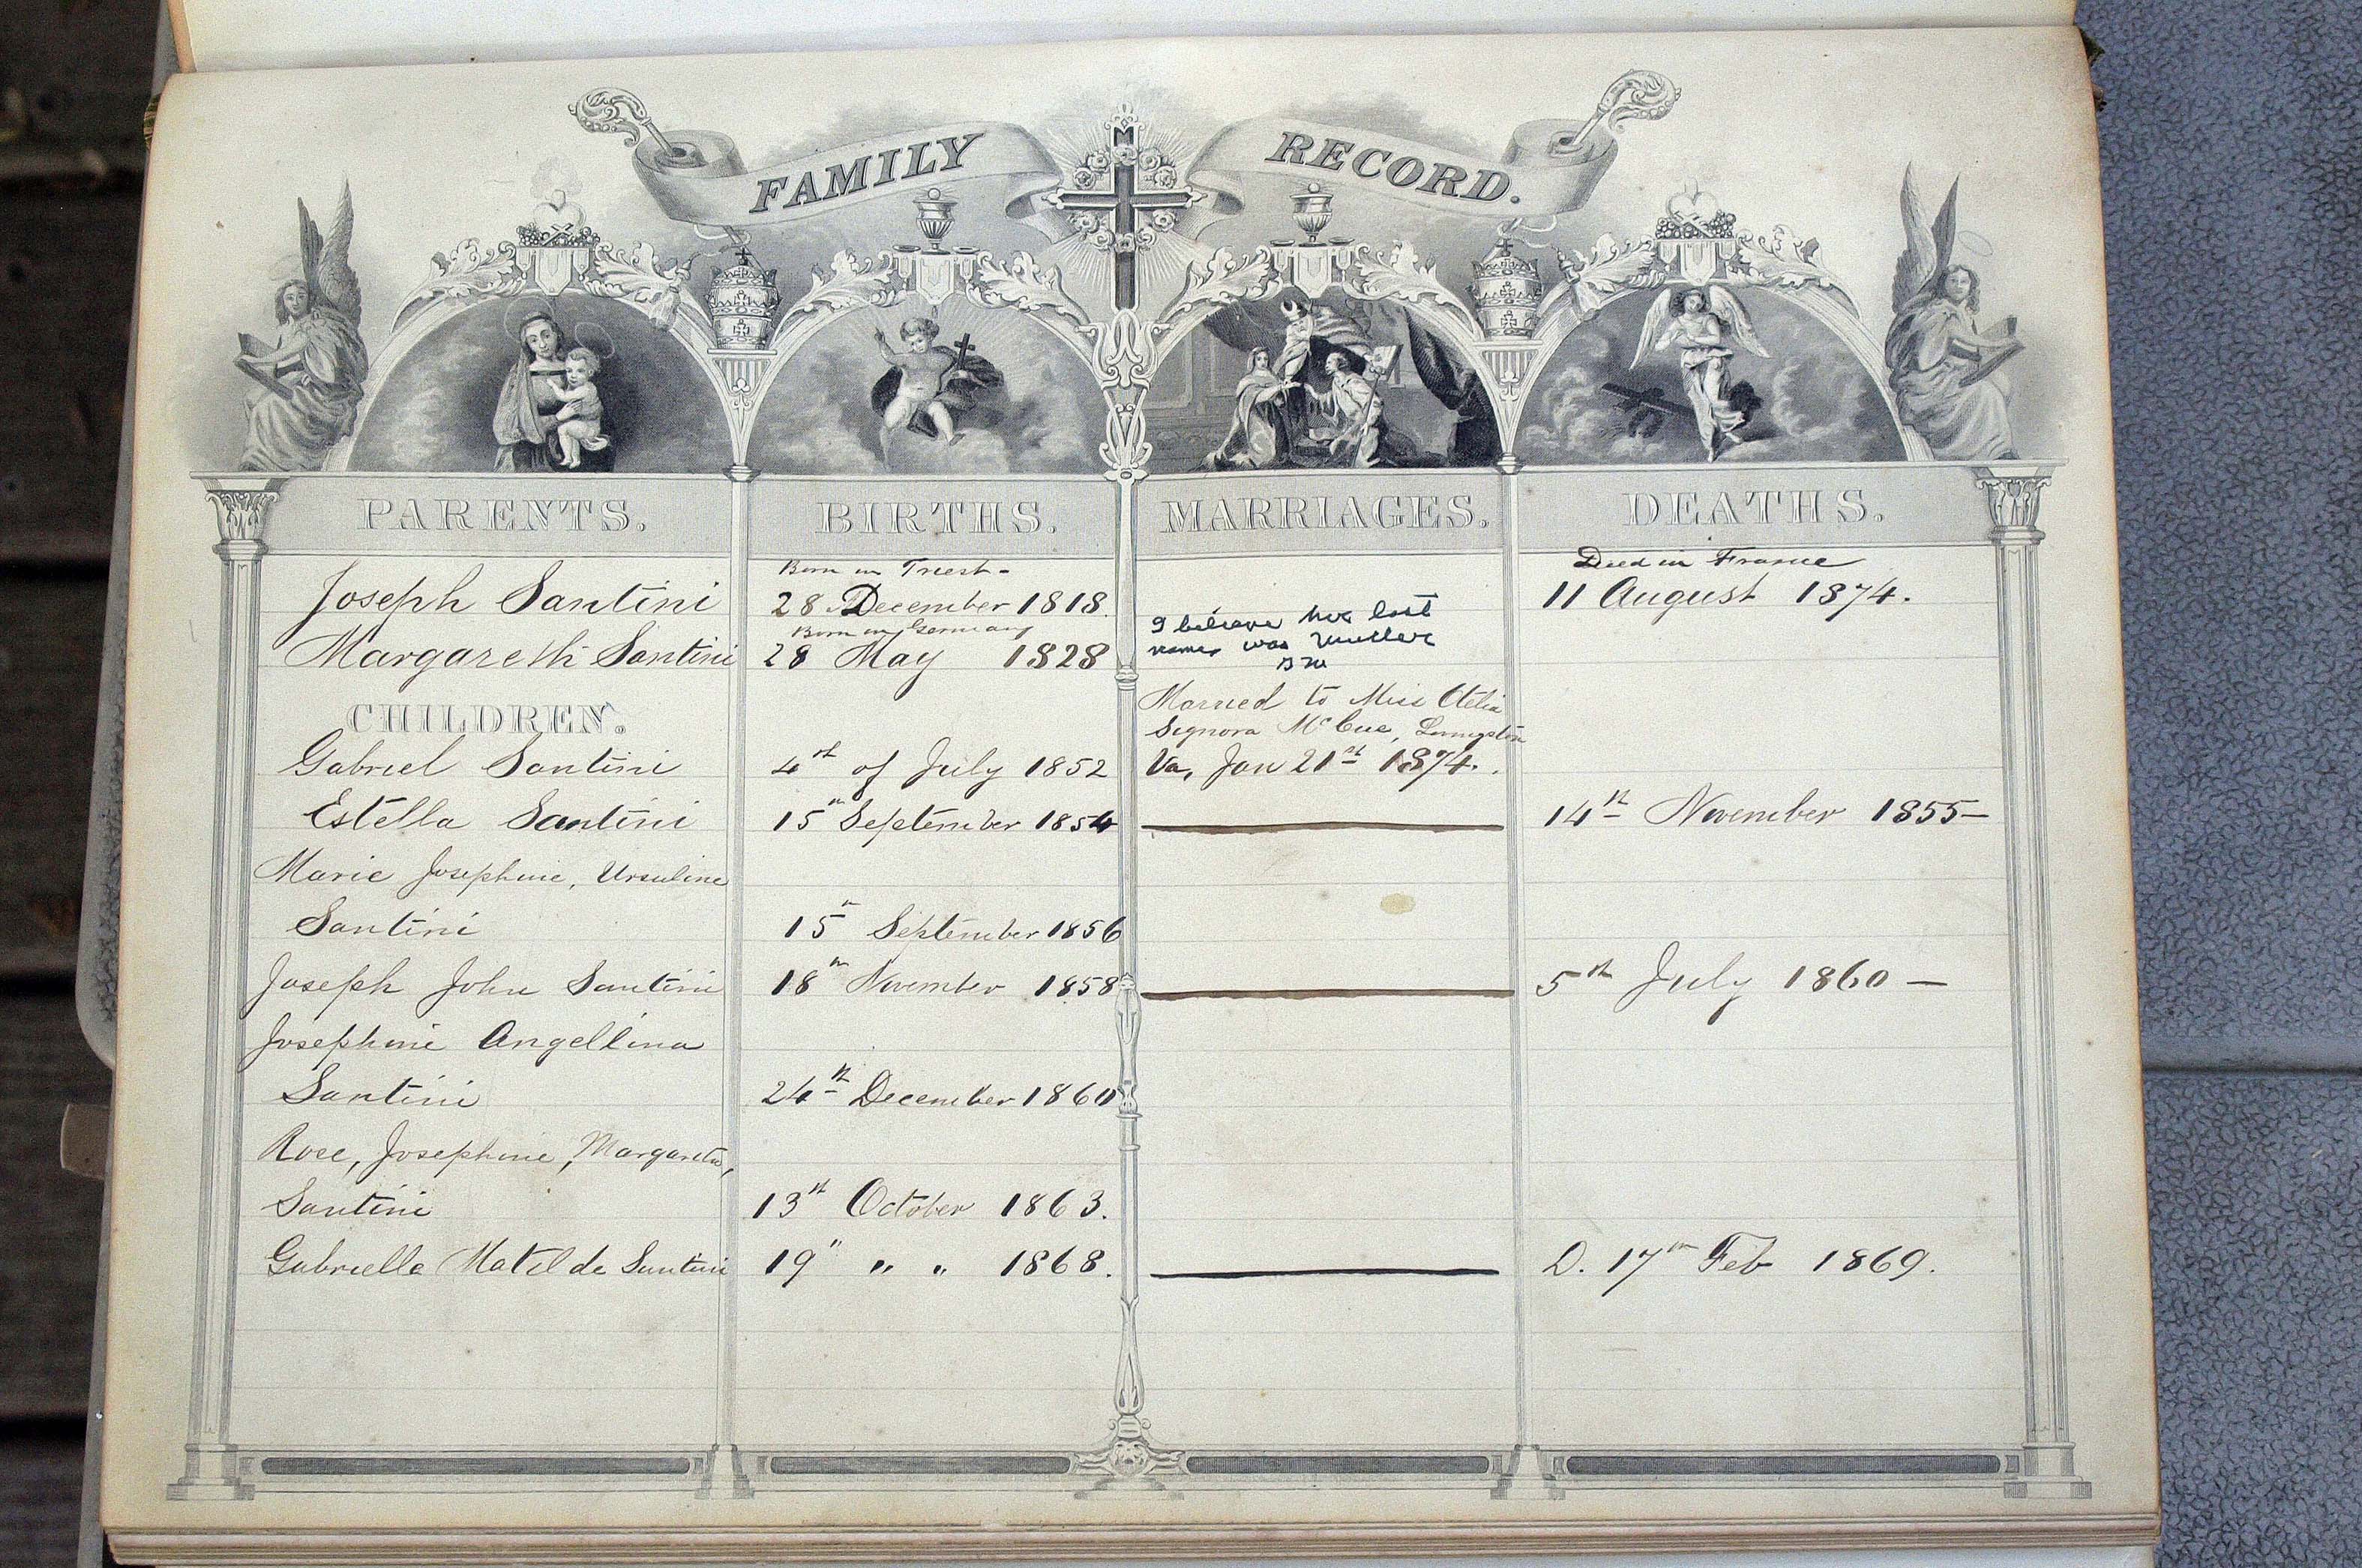 FAMILY RECORD.
PARENTS. BIRTHS. MARRIAGES. DEATHS.
Born in Triest - Died in France
Joseph Santini 28 December 1818. 11 August 1874.
Born in Germany I believe her last
Margareth Santini 28 May 1828 name was Mueller
CHILDREN. Married to Miss Otelia
Signora McCue, Livingston
Gabriel Santini 4th of July 1852 Va, Jan 21st 1874.
Estella Santini 15th September 1854 14th November 1855 -
Marie Josephine, Ursuline
Santini 15th September 1856
Joseph John Santini 18th November 1858 5th July 1860 -
Josephine Angellina
Santini 24th December 1860
Rose, Josephine, Margareta,
Santini 13th October 1863.
Gabriella Matilde Santini 19" " " 1868. D. 17th Feb 1869.